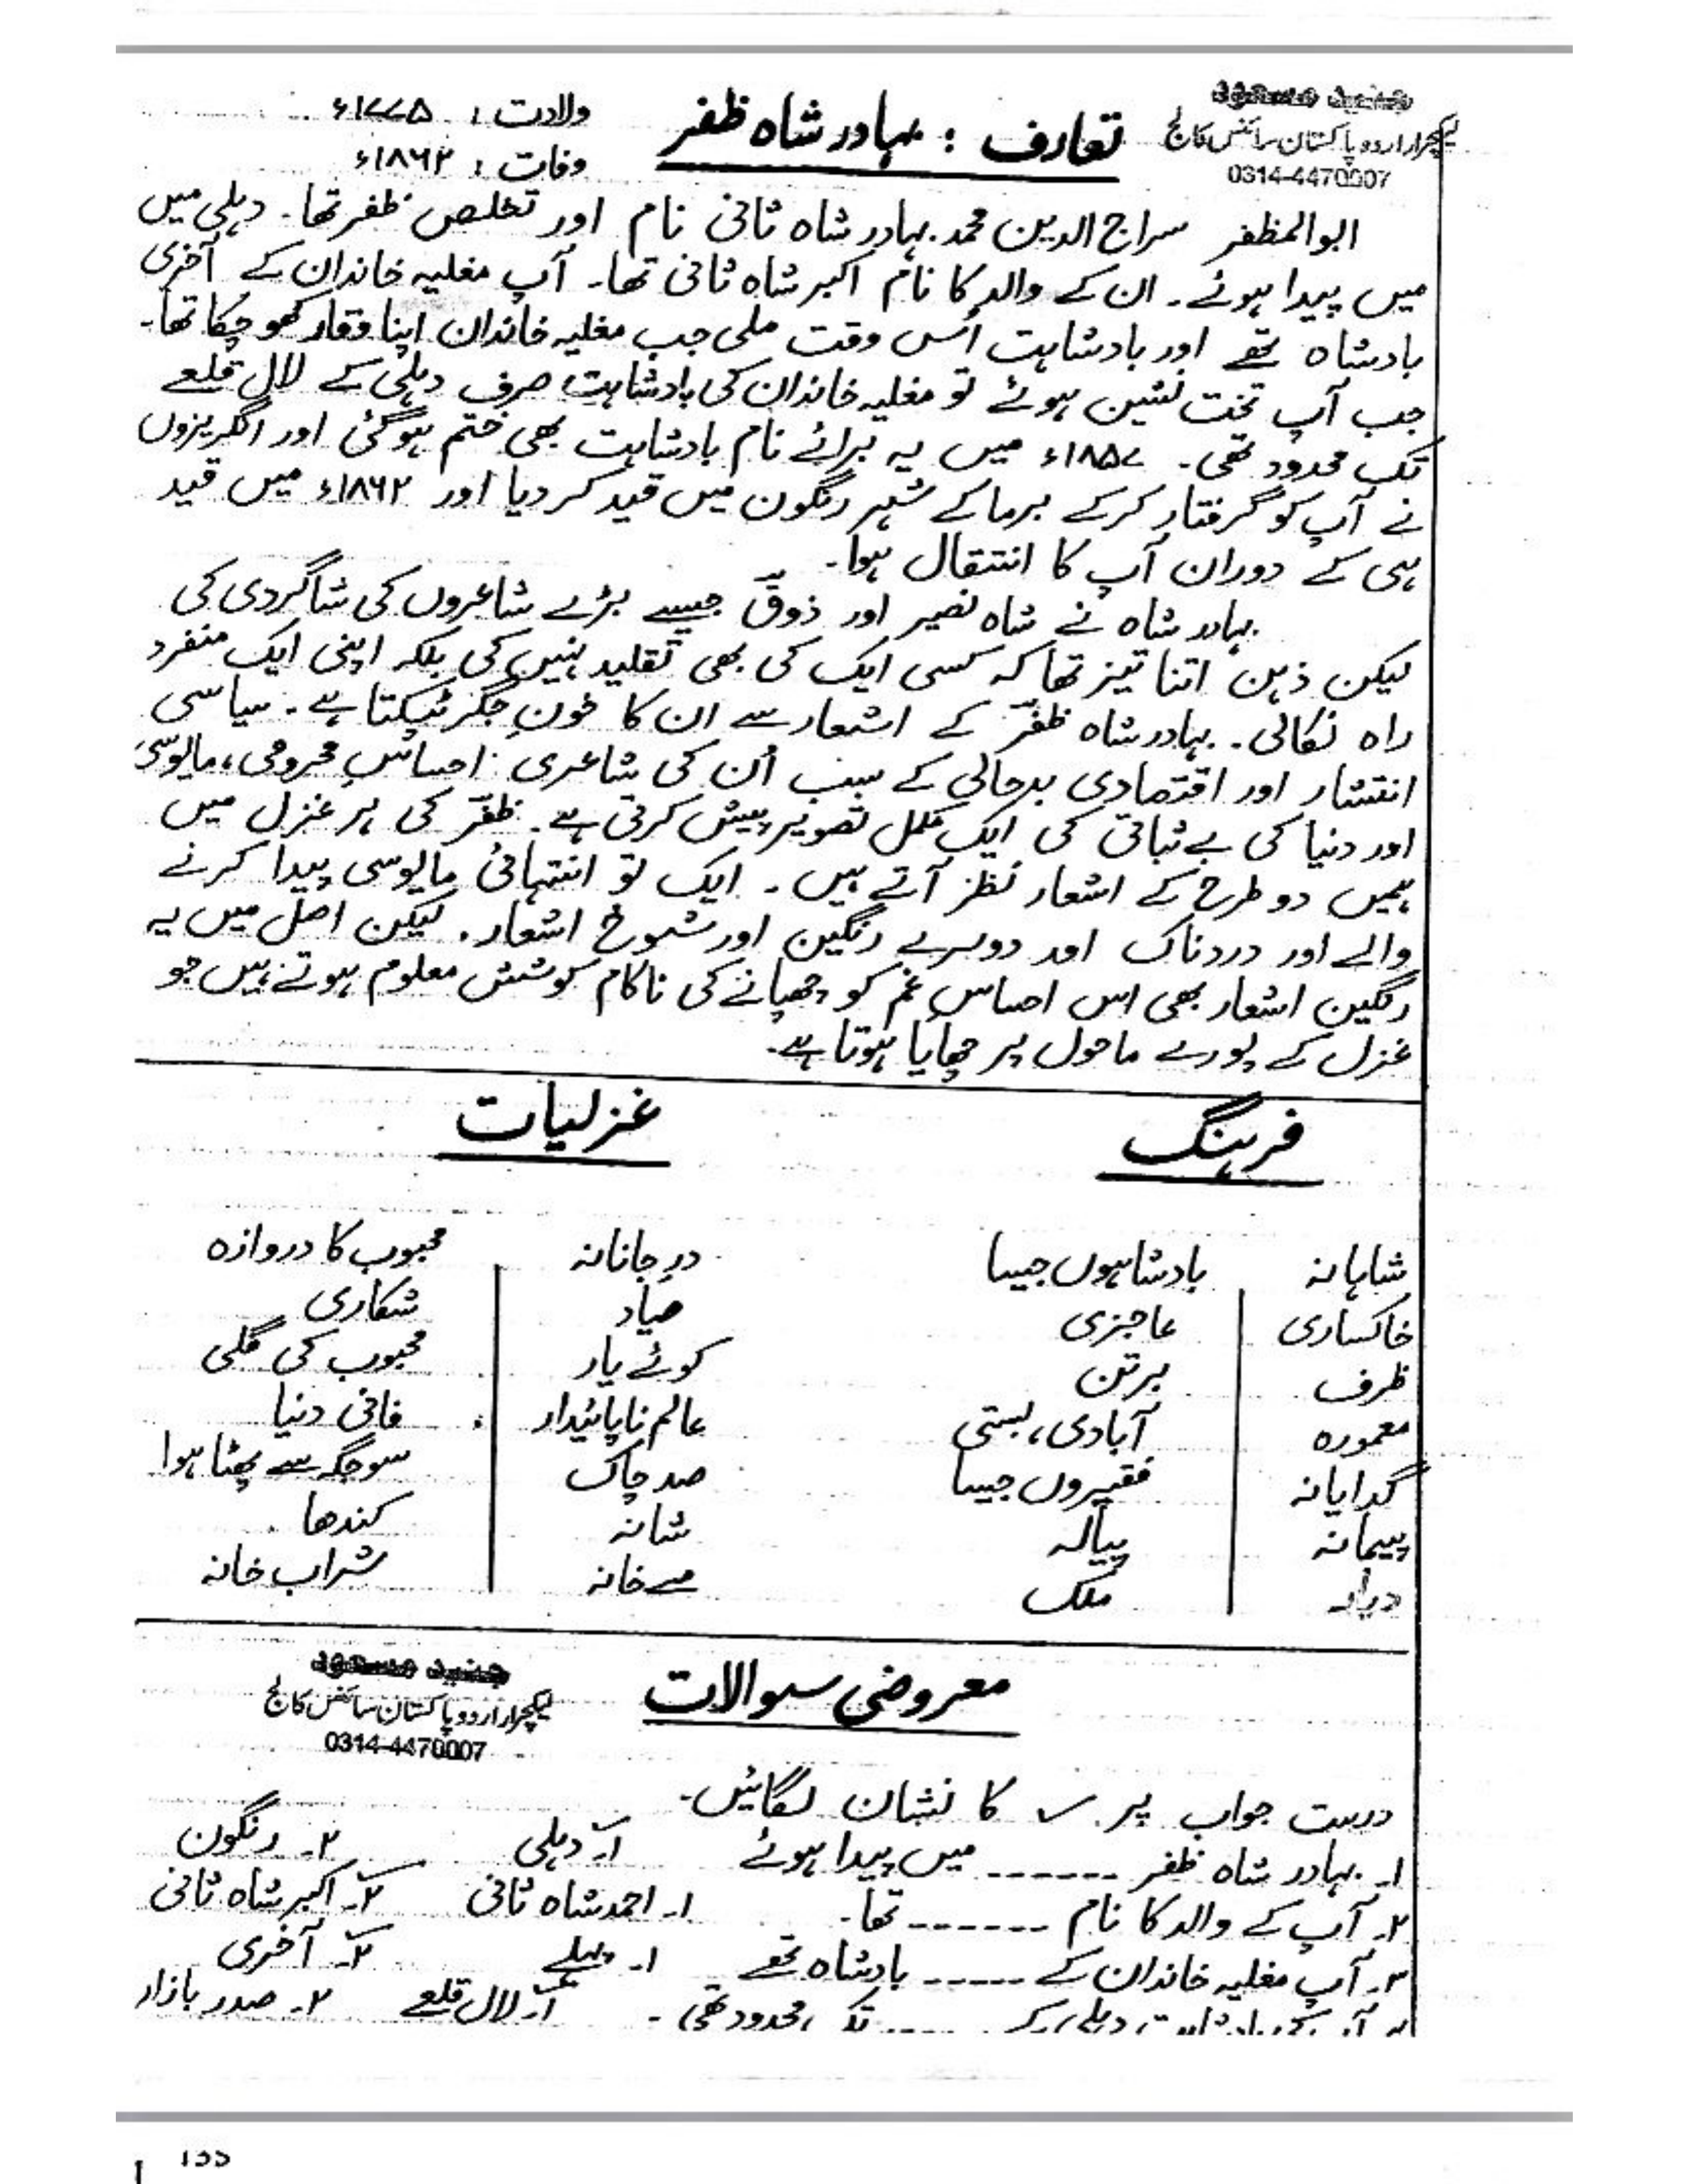 جنید مسعود
لیکچرار اردو پاکستان سائنس کالج
0314-4470007
تعارف : بہادر شاہ ظفر
ولادت : ۱۷۷۵ء
وفات : ۱۸۶۲ء
ابوالمظفر سراج الدین محمد بہادر شاہ ثانی نام اور تخلص ظفر تھا۔ دہلی میں
میں پیدا ہوئے۔ ان کے والد کا نام اکبر شاہ ثانی تھا۔ آپ مغلیہ خاندان کے آخری
بادشاہ تھے اور بادشاہت اُس وقت ملی جب مغلیہ خاندان اپنا وقار کھو چکا تھا۔
جب آپ تخت نشین ہوئے تو مغلیہ خاندان کی بادشاہت صرف دہلی کے لال قلعے
تک محدود تھی۔ ۱۸۵۷ء میں یہ برائے نام بادشاہت بھی ختم ہوگئی اور انگریزوں
نے آپ کو گرفتار کرکے برما کے شہر رنگون میں قید کر دیا اور ۱۸۶۲ء میں قید
ہی کے دوران آپ کا انتقال ہوا۔
بہادر شاہ نے شاہ نصیر اور ذوقؔ جیسے بڑے شاعروں کی شاگردی کی
لیکن ذہن اتنا تیز تھا کہ کسی ایک کی بھی تقلید نہیں کی بلکہ اپنی ایک منفرد
راہ نکالی۔ بہادر شاہ ظفرؔ کے اشعار سے ان کا خونِ جگر ٹپکتا ہے۔ سیاسی
انتشار اور اقتصادی بدحالی کے سبب اُن کی شاعری احساسِ محرومی، مایوسی
اور دنیا کی بے ثباتی کی ایک مکمل تصویر پیش کرتی ہے۔ ظفرؔ کی ہر غزل میں
ہمیں دو طرح کے اشعار نظر آتے ہیں۔ ایک تو انتہائی مایوسی پیدا کرنے
والے اور دردناک اور دوسرے رنگین اور شوخ اشعار۔ لیکن اصل میں یہ
رنگین اشعار بھی اس احساسِ غم کو چھپانے کی ناکام کوشش معلوم ہوتے ہیں جو
غزل کے پورے ماحول پر چھایا ہوتا ہے۔
فرہنگ غزلیات
شاہانہ بادشاہوں جیسا درِ جانانہ محبوب کا دروازہ
خاکساری عاجزی صیاد شکاری
ظرف برتن کوئے یار محبوب کی گلی
معمورہ آبادی، بستی عالم ناپائیدار فانی دنیا
گدایانہ فقیروں جیسا صد چاک سو جگہ سے پھٹا ہوا
پیمانہ پیالہ شانہ کندھا
دیار ملک مے خانہ شراب خانہ
معروضی سوالات
جنید مسعود
لیکچرار اردو پاکستان سائنس کالج
0314-4470007
درست جواب پر ✓ کا نشان لگائیں۔
۱۔ بہادر شاہ ظفر ------ میں پیدا ہوئے ۱۔ دہلی ۲۔ رنگون
۲۔ آپ کے والد کا نام ------ تھا۔ ۱۔ احمد شاہ ثانی ۲۔ اکبر شاہ ثانی
۳۔ آپ مغلیہ خاندان کے ----- بادشاہ تھے ۱۔ پہلے ۲۔ آخری
دہلی کے ----- تک محدود تھی۔ ۱۔ لال قلعے ۲۔ صدر بازار